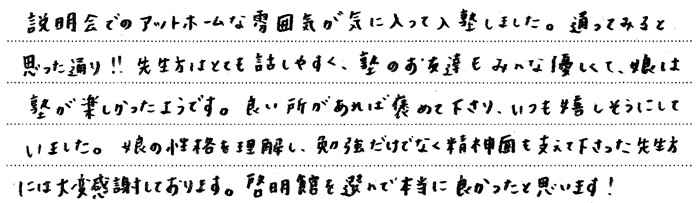 説明会でのアットホームな雰囲気が気に入って入塾しました。通ってみると
思った通り!! 先生方はとても話しやすく、塾のお友達もみんな優しくて、娘は
塾が楽しかったようです。良い所があれば褒めて下さり、いつも嬉しそうにして
いました。娘の性格を理解し、勉強だけでなく精神面も支えて下さった先生方
には大変感謝しております。啓明館を選んで本当に良かったと思います!